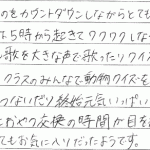 のをカウントダウンしながらとても
な5時から起きてワクワクしな
歌を大きな声で歌ったりクイ
クラスのみんなで動物クイズを
つないだり終始元気いっぱい
おやつ交換の時間が目を
てもお気に入りだったようです。